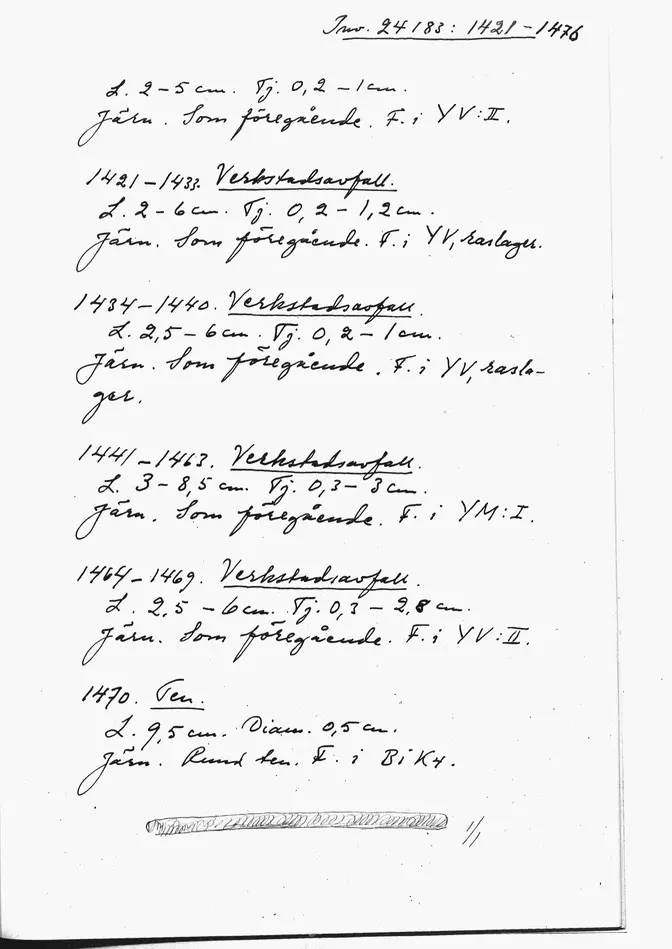 Inv. 24183: 1421-1476
L. 2-5 cm. Tj. 0,2 - 1 cm.
Järn. Som föregående. F. i YV:II.
1421-1433. Verkstadsavfall.
L. 2-6 cm. Tj. 0,2 - 1,2 cm.
Järn. Som föregående. F. i YV, raslager.
1434-1440. Verkstadsavfall.
L. 2,5-6 cm. Tj. 0,2 - 1 cm.
Järn. Som föregående. F. i YV, rasla-
ger.
1441-1463. Verkstadsavfall.
L. 3-8,5 cm. Tj. 0,3-3 cm.
Järn. Som föregående. F. i YM:I.
1464-1469. Verkstadsavfall.
L. 2,5-6 cm. Tj. 0,3-2,8 cm.
Järn. Som föregående. F. i YV:II.
1470. Ten.
L. 9,5 cm. Diam. 0,5 cm.
Järn. Rund ten. F. i BiK4.
1/1